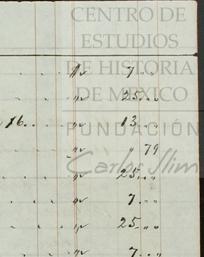 CENTRO DE
ESTUDIOS
DE HISTORIA
DE MÉXICO
FUNDACIÓN
Carlos Slim
7
25
16 13
79
25
7
25
7